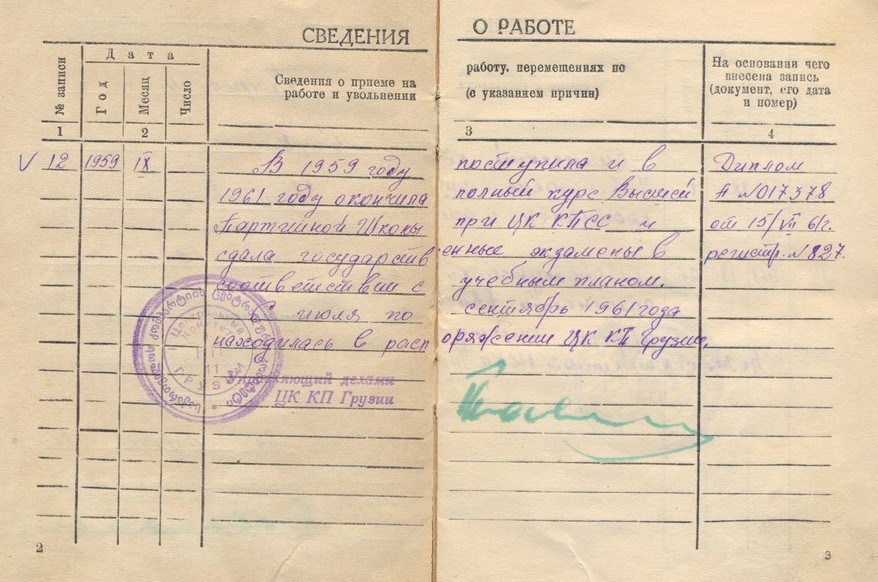 СВЕДЕНИЯ О РАБОТЕ
№ записи
Дата
Год
Месяц
Число
Сведения о приеме на работу, перемещениях по
работе и увольнении (с указанием причин)
На основании чего
внесена запись
(документ, его дата
и номер)
1 2 3 4
V 12 1959 IX В 1959 году поступила и в Диплом
1961 году окончила полный курс Высшей А №017378
Партийной Школы при ЦК КПСС и от 15/VII 61г.
сдала государственные экзамены в регистр. №827.
соответствии с учебным планом.
С июля по сентябрь 1961 года
находилась в распоряжении ЦК КП Грузии.
Управляющий делами
ЦК КП Грузии
Центральный
ГРУЗИИ
2
3